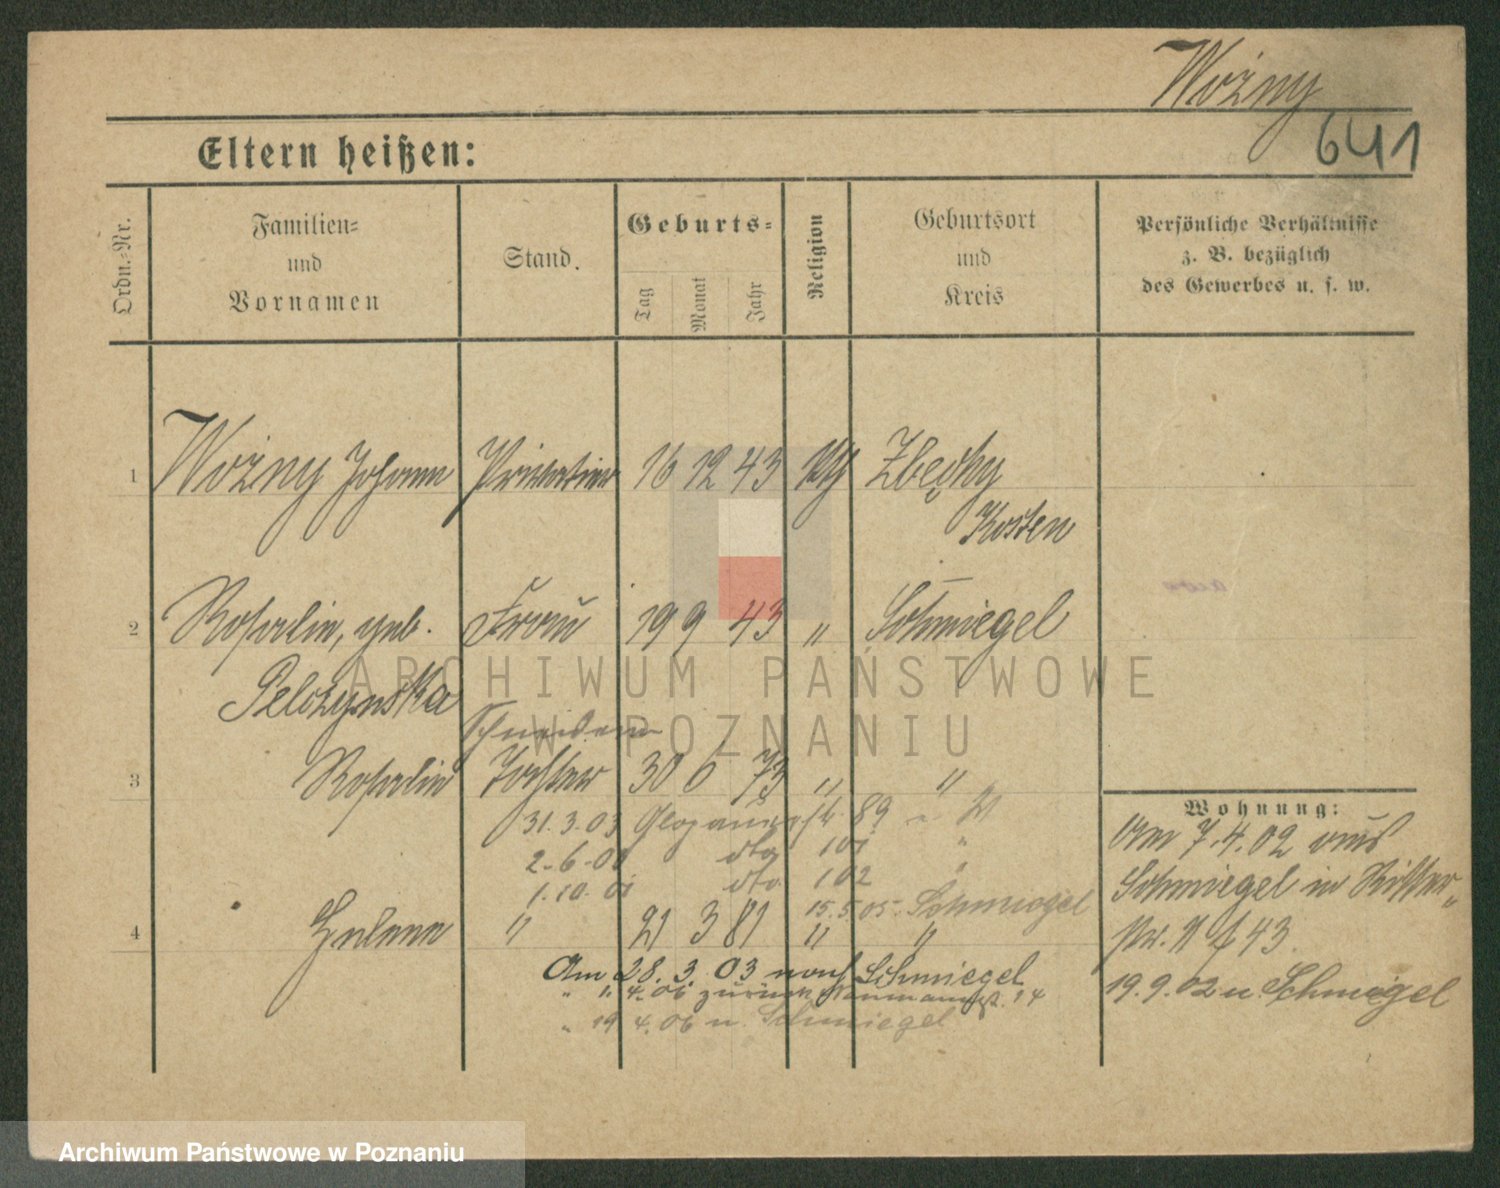 Woźny
641
Eltern heißen:
Ordn.-Nr.
Familien-
und
Vornamen
Stand.
Geburts-
Tag
Monat
Jahr
Religion
Geburtsort
und
Kreis
Persönliche Verhältnisse
z. B. bezüglich
des Gewerbes u. s. w.
1 Woźny Johann Privatier 16 12 43 kth Zbęchy
Kosten
2 Rosalie, geb. Frau 19 9 43 " Schmiegel
Pelczynska
Schneiderin
3 Rosalie Tochter 30 6 73 " "
31.3.03 Glogauerstr. 89
dto 101 "
1.10. dto 102 "
15.5.05 Schmiegel
4 Helene " 21 3 81 " "
Am 28.3.03 nach Schmiegel
" 1.4.06 zurück Naumannst. 14
" 19 4.06 n. Schmiegel
Wohnung:
Am 7.4.02 aus
Schmiegel in Ritter-
str. 43
19.9.02 n. Schmiegel
ARCHIWUM PAŃSTWOWE
W POZNANIU
Archiwum Państwowe w Poznaniu